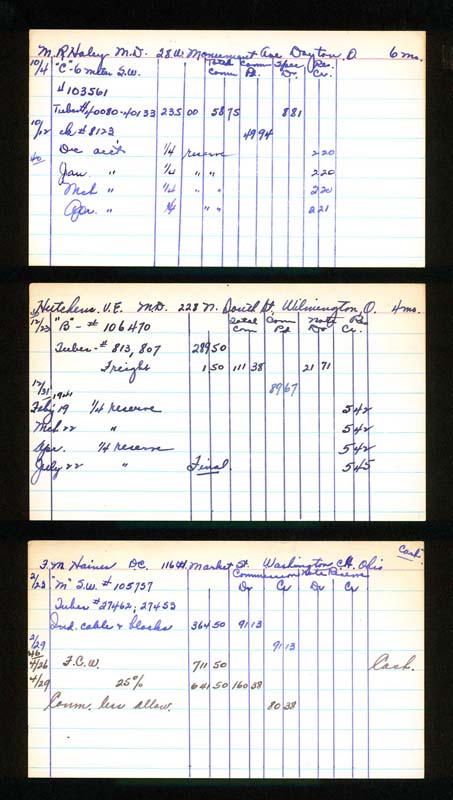 M. R. Haley M.D. 28 W. Monument Ave Dayton, O. 6 mo.
Total Comm Spec Res.
Comm Pd. Dr. Cr.
10/4 "C" - 6 meter S.W.
# 103561
Tubes # 40080 - 40133 235 00 58 75 8 81
10/12 ck # 8123 49 94
40 Dec acct 1/4 reserve 2 20
Jan. " 1/4 " " 2 20
Mch " 1/4 " " 2 20
Apr. " 1/4 " " 2 21
Hutchens. V.E. M.D. 228 N. South St, Wilmington, O. 4 mo.
Total Com Note Res
Com Pd Dr Cr.
12/23 "B" - # 106470
Tubes - # 813, 807 289 50
Freight 1 50 111 38 21 71
12/31 1941 89 67
Feby 19 1/4 reserve 5 42
Mch 22 " 5 42
Apr. 1/4 reserve 5 42
July 22 " Final. 5 45
Cash
F. M. Haines D.C. 116 W. Market St. Washington C.H. Ohio
Commission Note Reserve
Dr Cr Dr Cr
2/23 "M" S.W. # 105737
Tubes # 27462, 27453
Ind. cable & blocks 364 50 91 13
2/29 91 13
46
4/26 F.C.W. 711 50 Cash.
4/29 25% 641 50 160 38
Comm. less allow. 80 38